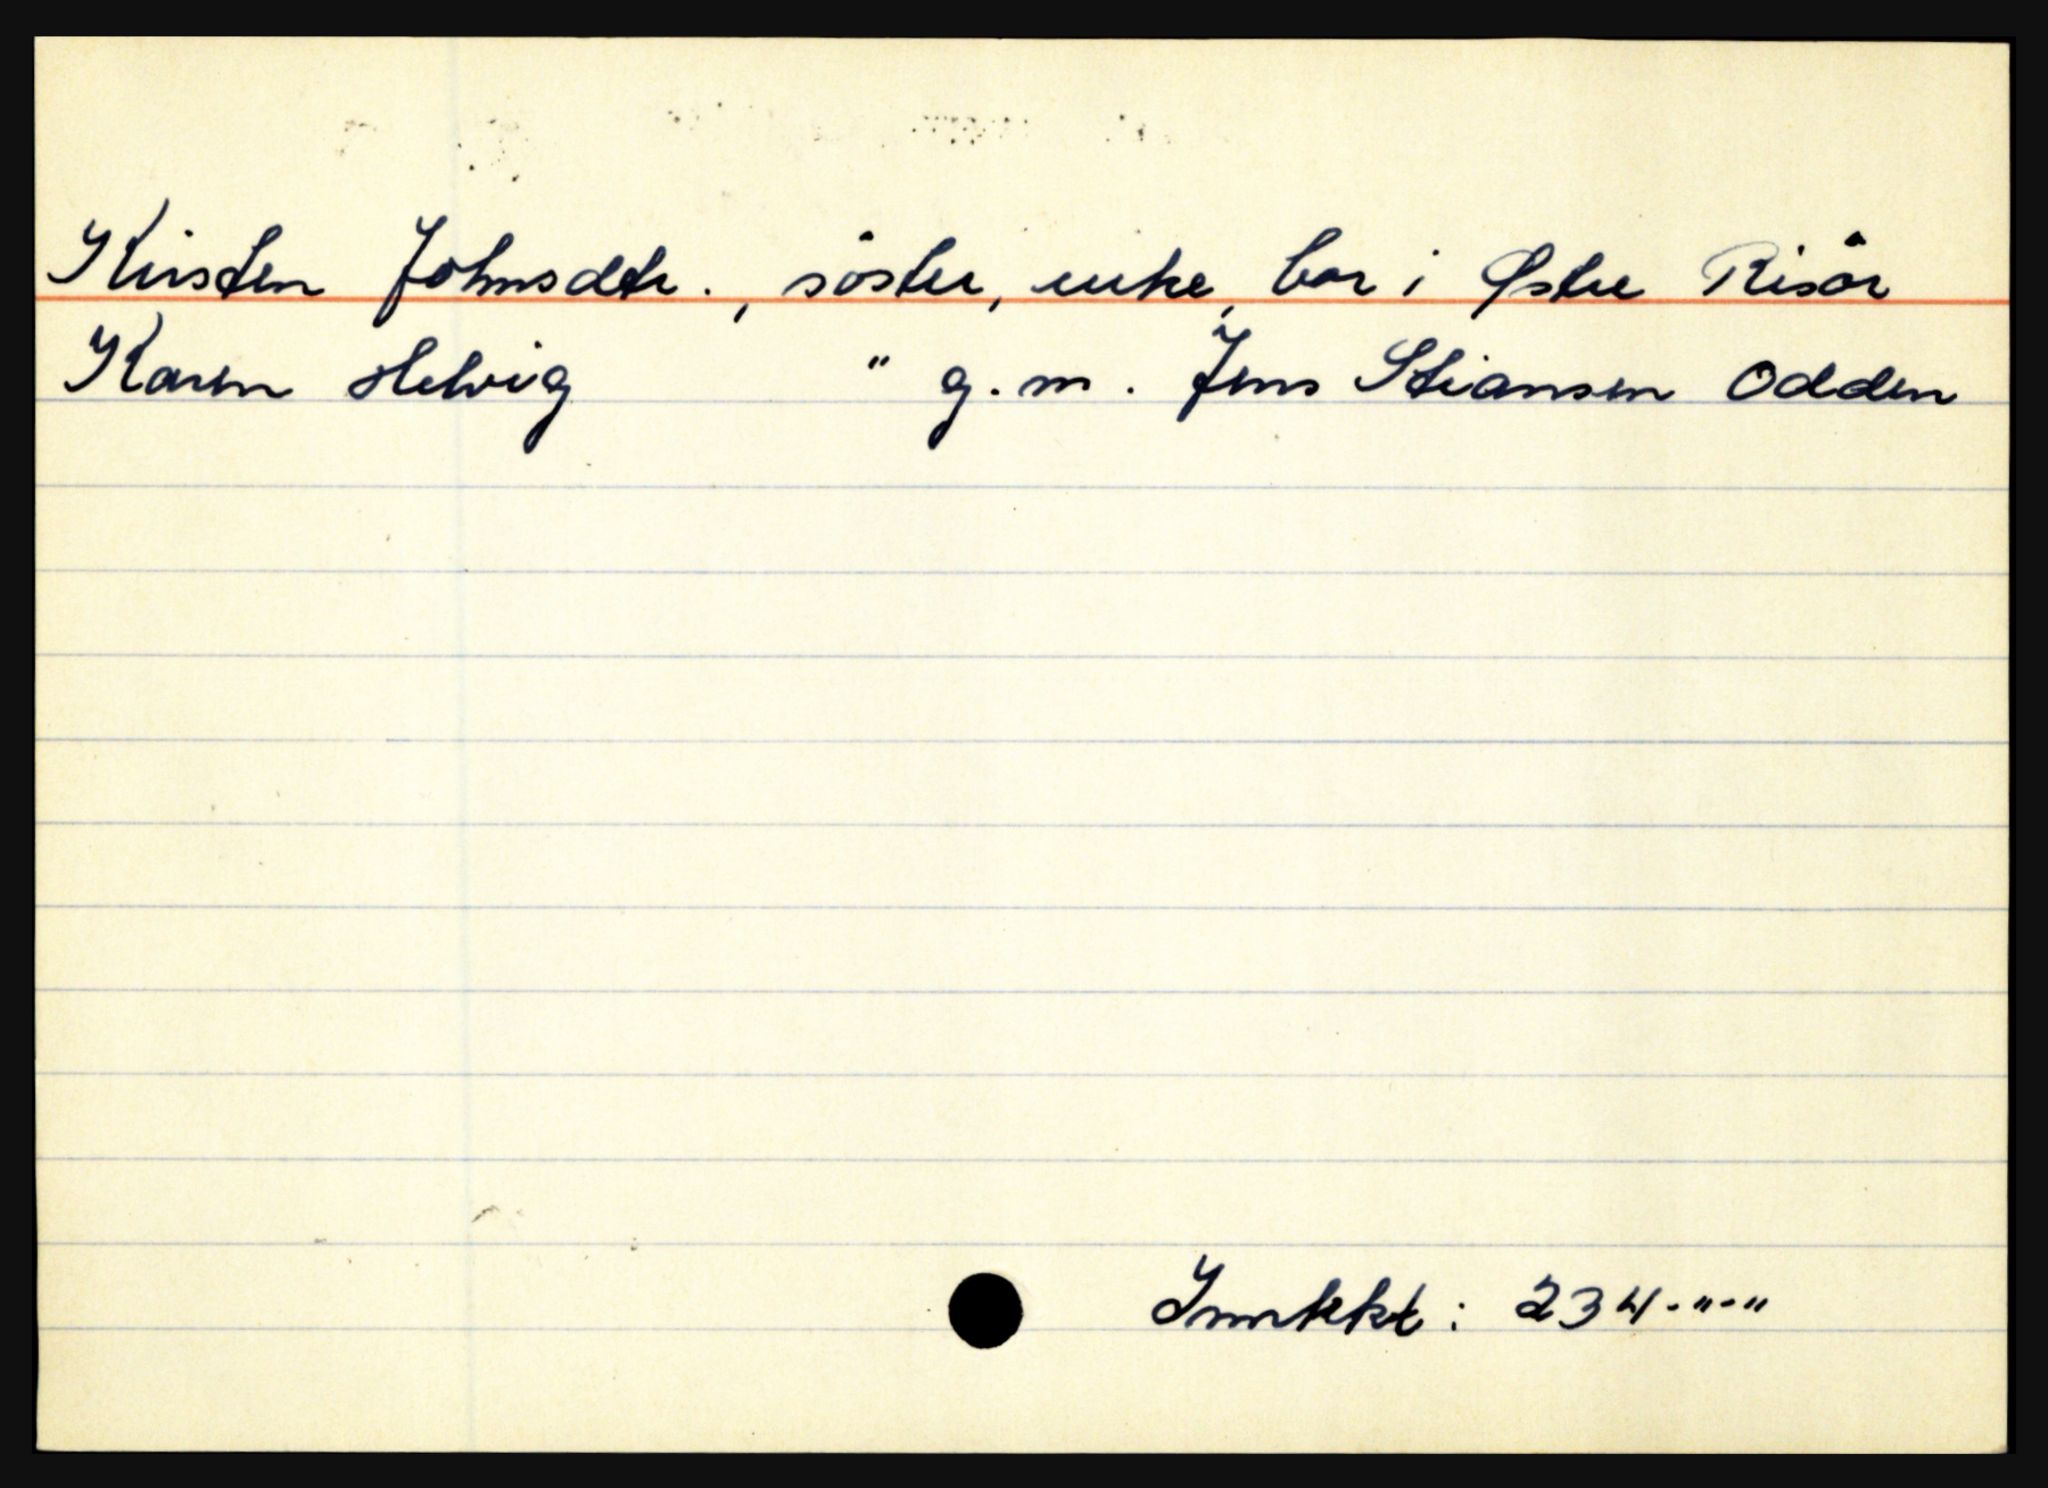 Kirsten Johnsdtr., söster, enke, bor i Østre Risör
Karen Helvig " g.m. Jens Stiansen Odden
Inntekt: 234-"-"